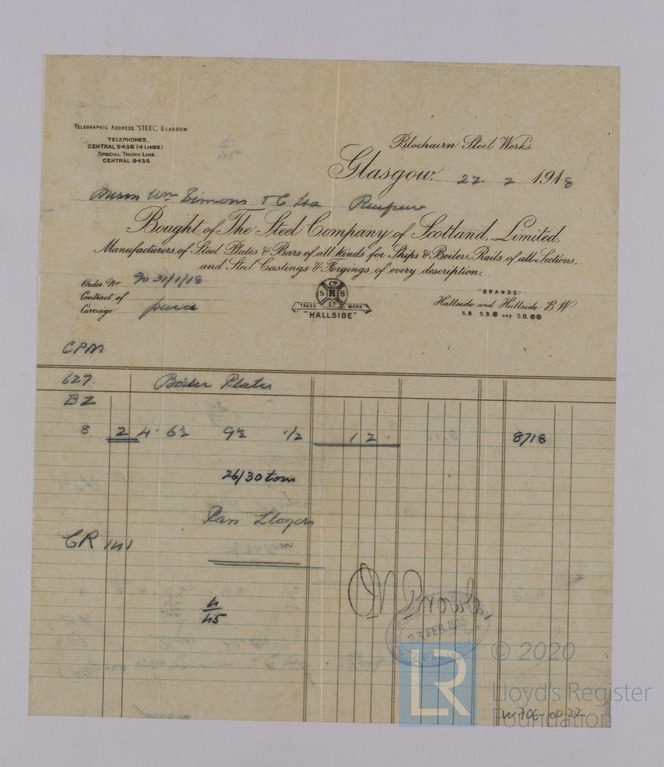 TELEGRAPHIC ADDRESS "STEEL", GLASGOW.
TELEPHONES.
CENTRAL 9436 (4 LINES)
SPECIAL TRUNK LINE.
CENTRAL 9435.
Blochairn Steel Works.
Glasgow. 22 2 1918
Wm Simons & C Renfrew
Bought of The Steel Company of Scotland, Limited,
Manufacturers of Steel Plates & Bars of all kinds for Ships & Boilers, Rails of all Sections,
and Steel Castings & Forgings of every description.
Order No 90 31/1/18
Contract of
Carriage paid
TRADE MARK
"HALLSIDE"
"BRANDS"
Hallside and Hallside B.W
CPM
627 Boiler Plates
BZ
8 2 4 6½ 9½ ½ 12 8718
26/30 tons
Pass Lloyds
CR 141
4/45
23 FEB 1918
LR
© 2020
Lloyd's Register
Foundation